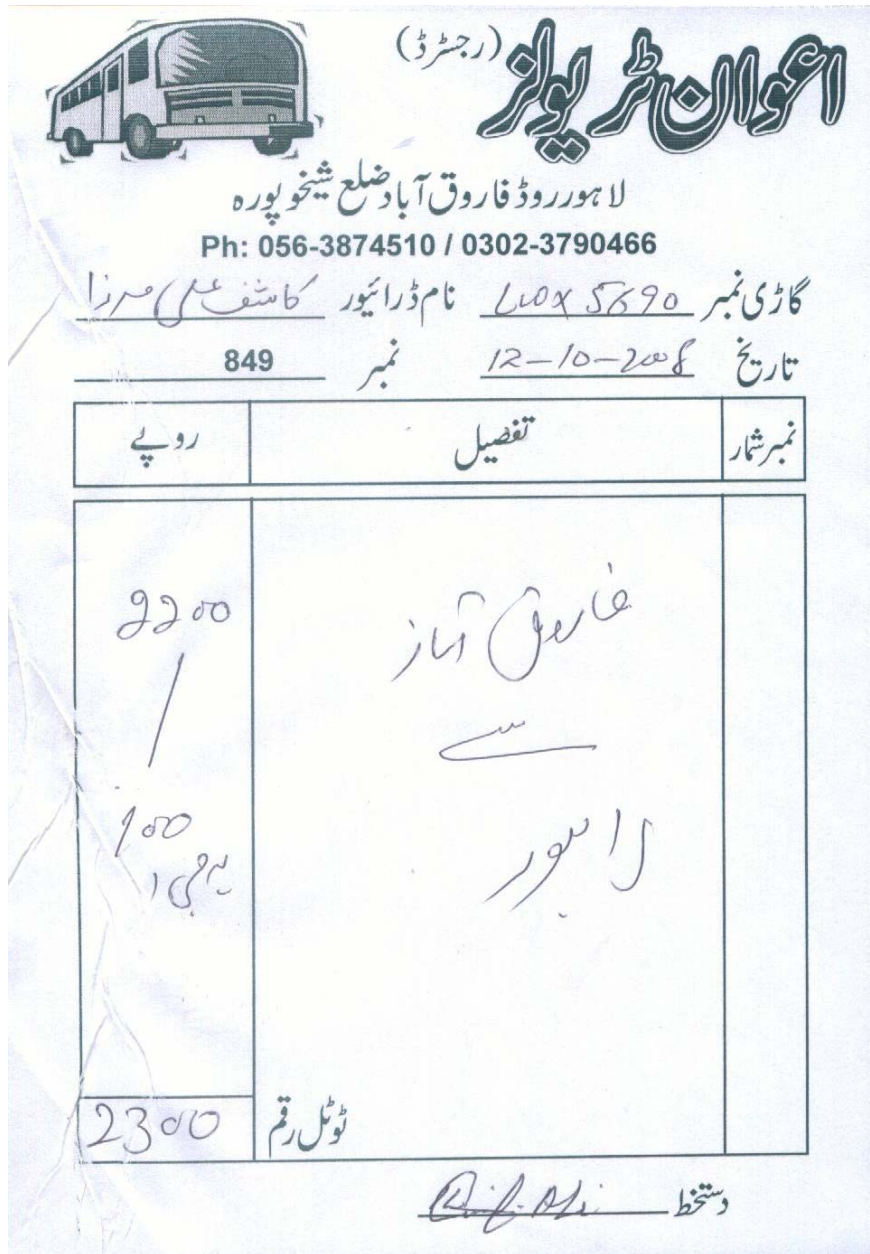 اعوان ٹریولز (رجسٹرڈ)
لاہور روڈ فاروق آباد ضلع شیخوپورہ
Ph: 056-3874510 / 0302-3790466
گاڑی نمبر LOX 5690 نام ڈرائیور کاشف علی مرزا
تاریخ 12-10-2008 نمبر 849
نمبر شمار تفصیل روپے
فاروق آباد 2200
سے
لاہور 100
ٹوٹل رقم 2300
دستخط